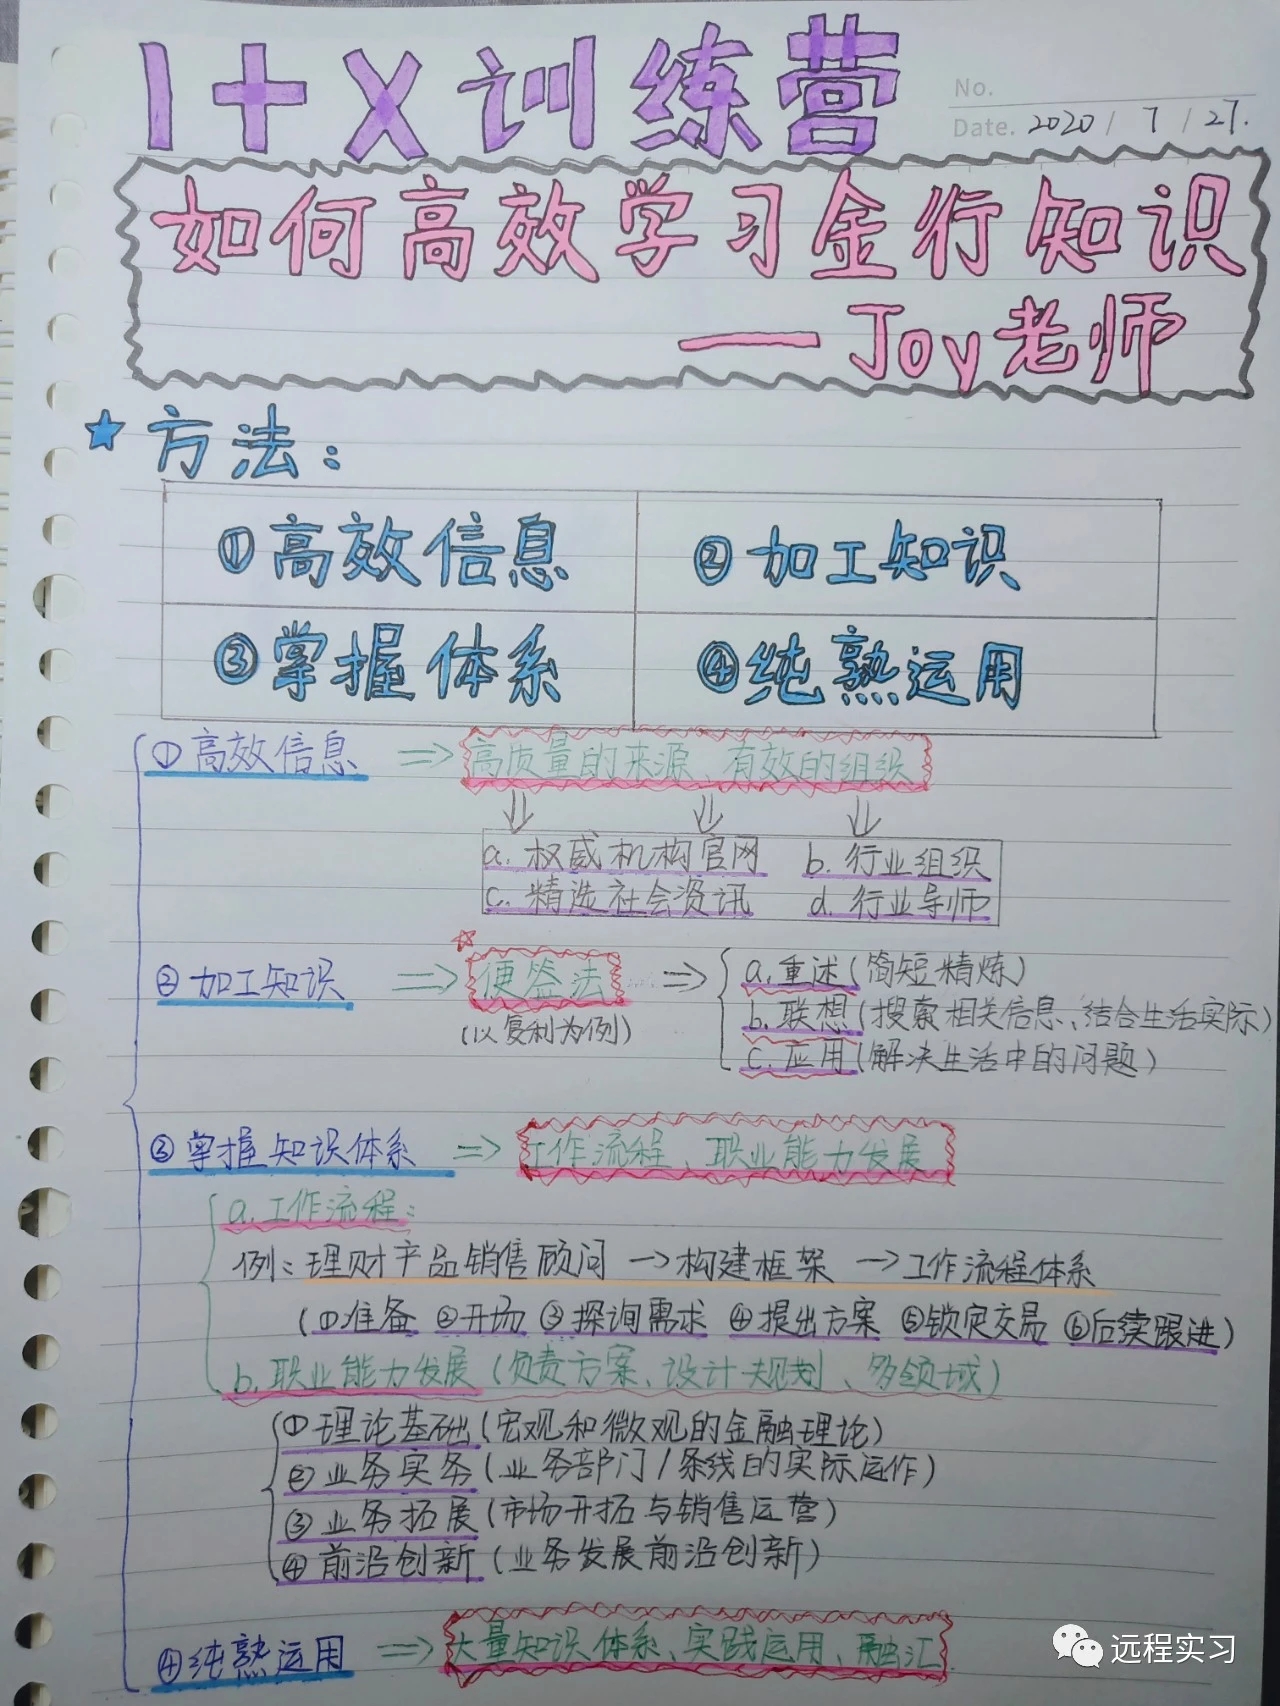 1+X训练营
No.
Date. 2020 / 7 / 27.
如何高效学习金行知识
——Joy老师
★方法：
①高效信息 ②加工知识
③掌握体系 ④纯熟运用
①高效信息 ⇒ 高质量的来源、有效的组织
a. 权威机构官网 b. 行业组织
c. 精选社会资讯 d. 行业导师
②加工知识 ⇒ 便签法 ⇒ a.重述(简短精炼)
(以复利为例) b.联想(搜索相关信息、结合生活实际)
c.应用(解决生活中的问题)
③掌握知识体系 ⇒ 工作流程、职业能力发展
a.工作流程：
例：理财产品销售顾问→构建框架→工作流程体系
(①准备 ②开场 ③探询需求 ④提出方案 ⑤锁定交易 ⑥后续跟进)
b.职业能力发展(负责方案、设计规划、多领域)
①理论基础(宏观和微观的金融理论)
②业务实务(业务部门/条线的实际运作)
③业务拓展(市场开拓与销售运营)
④前沿创新(业务发展前沿创新)
④纯熟运用 ⇒ 大量知识体系、实践运用、融汇
远程实习